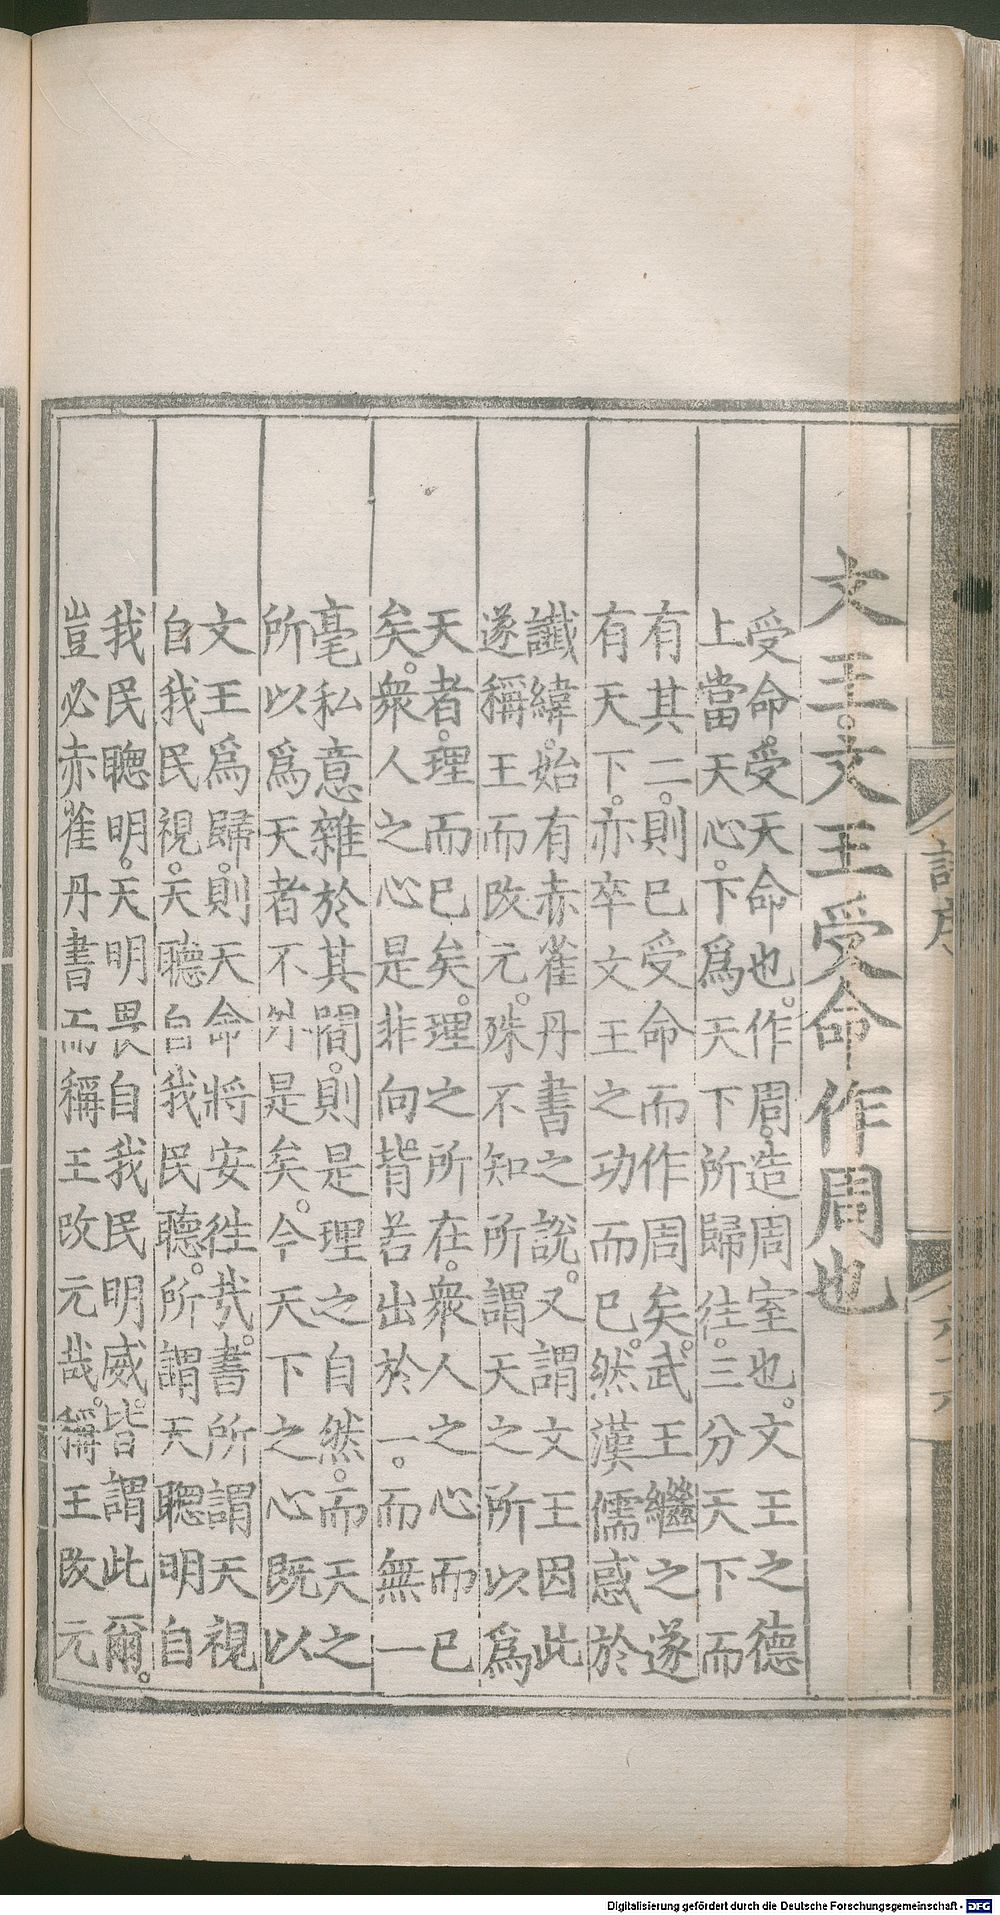 文王。文王受命作周也
受命。受天命也。作周。造周室也。文王之德
上當天心。下爲天下所歸往。三分天下而
有其二。則已受命而作周矣。武王繼之遂
有天下。亦卒文王之功而已。然漢儒惑於
讖緯。始有赤雀丹書之說。又謂文王因此
遂稱王而改元。殊不知所謂天之所以爲
天者。理而已矣。理之所在。衆人之心而已
矣。衆人之心是非向背。若出於一。而無一
毫私意雜於其間。則是理之自然。而天之
所以爲天者不外是矣。今天下之心既以
文王爲歸。則天命將安往哉。書所謂天視
自我民視。天聽自我民聽。所謂天聰明自
我民聰明。天明畏自我民明威。皆謂此爾。
豈必赤雀丹書而稱王改元哉。稱王改元
詩序
Digitalisierung gefördert durch die Deutsche Forschungsgemeinschaft - DFG